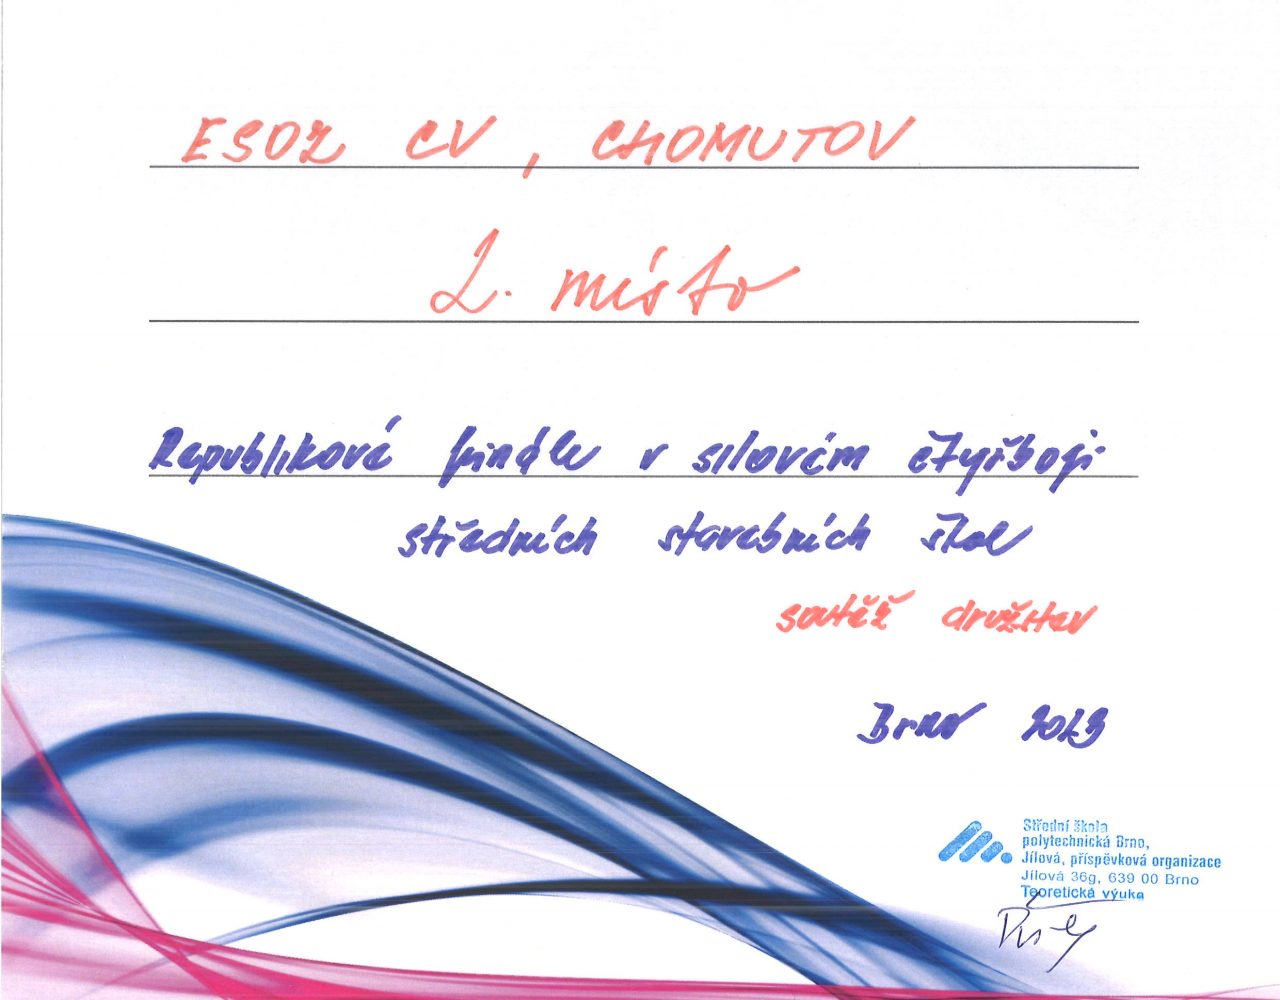 ESOZ CV, CHOMUTOV
2. místo
Republikové finále v silovém čtyřboji
středních stavebních škol
soutěž družstev
Brno 2023
Střední škola
polytechnická Brno,
Jílová, příspěvková organizace
Jílová 36g, 639 00 Brno
Teoretická výuka